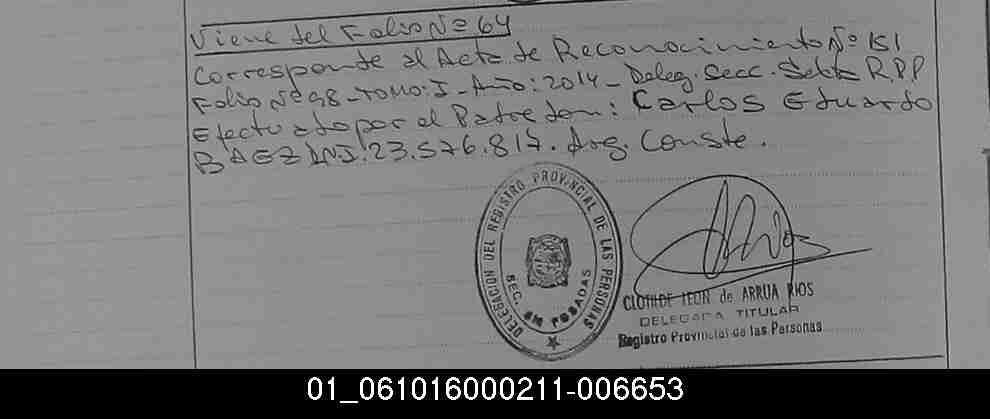 Viene del Folio Nº 64
Corresponde al Acta de Reconocimiento Nº 151
Folio Nº 98 - TOMO: I - Año: 2014 - Deleg. Secc. Sexta R.P.P
Efectuado por el Padre don: Carlos Eduardo
BAEZ D.N.I. 23.576.817. Arg. Conste.
DELEGACION DEL REGISTRO PROVINCIAL DE LAS PERSONAS
SEC. 6ta POSADAS
CLOTILDE LEON de ARRUA RIOS
DELEGADA TITULAR
Registro Provincial de las Personas
01_061016000211-006653